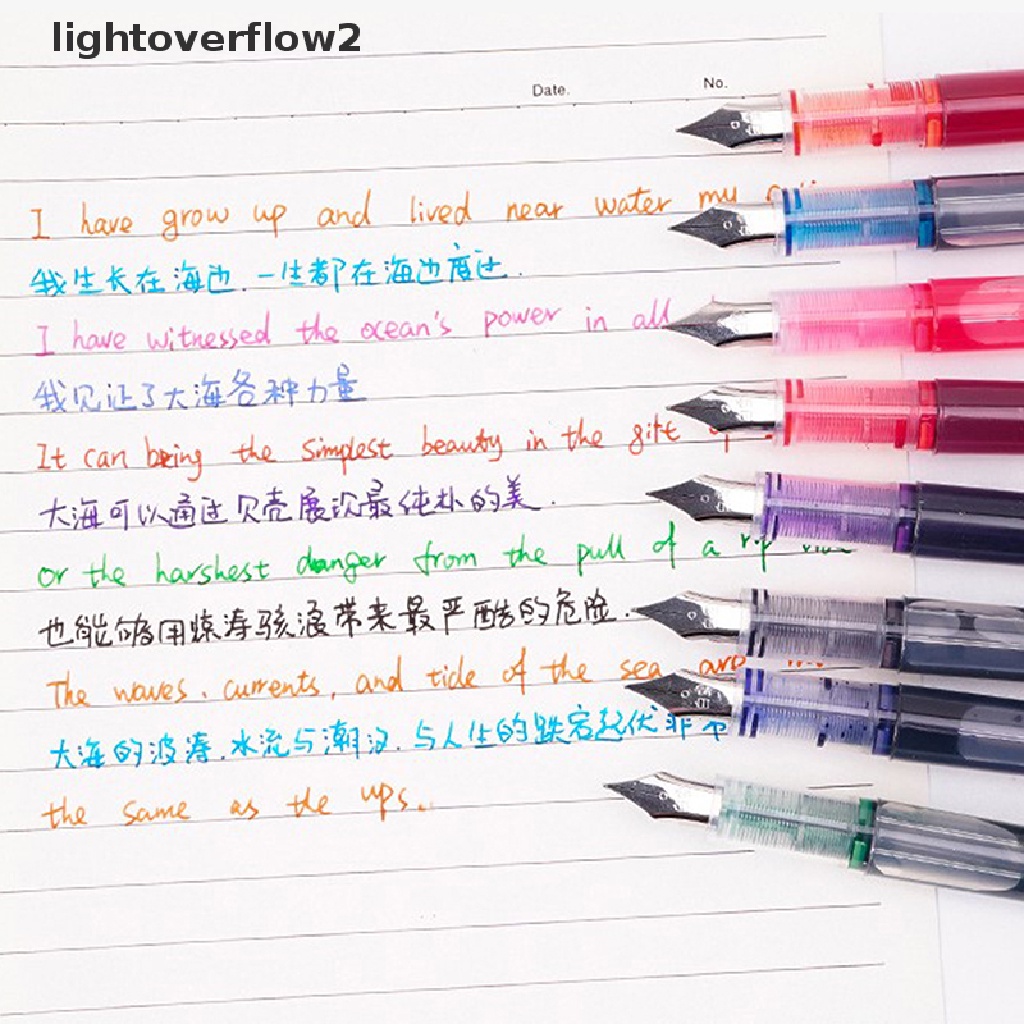 lightoverflow2
Date. No.
I have grow up and lived near water my
我生长在海边.一生都在海边度过.
I have witnessed the ocean's power in all
我见证了大海各种力量
It can bring the simplest beauty in the gift
大海可以通过贝壳展次最纯朴的美.
or the harshest danger from the pull of a rip
也能够用惊涛骇浪带来最严酷的危险.
The waves, currents, and tide of the sea are
大海的波涛.水流与潮汐.与人生的跌宕起伏非
the same as the ups.